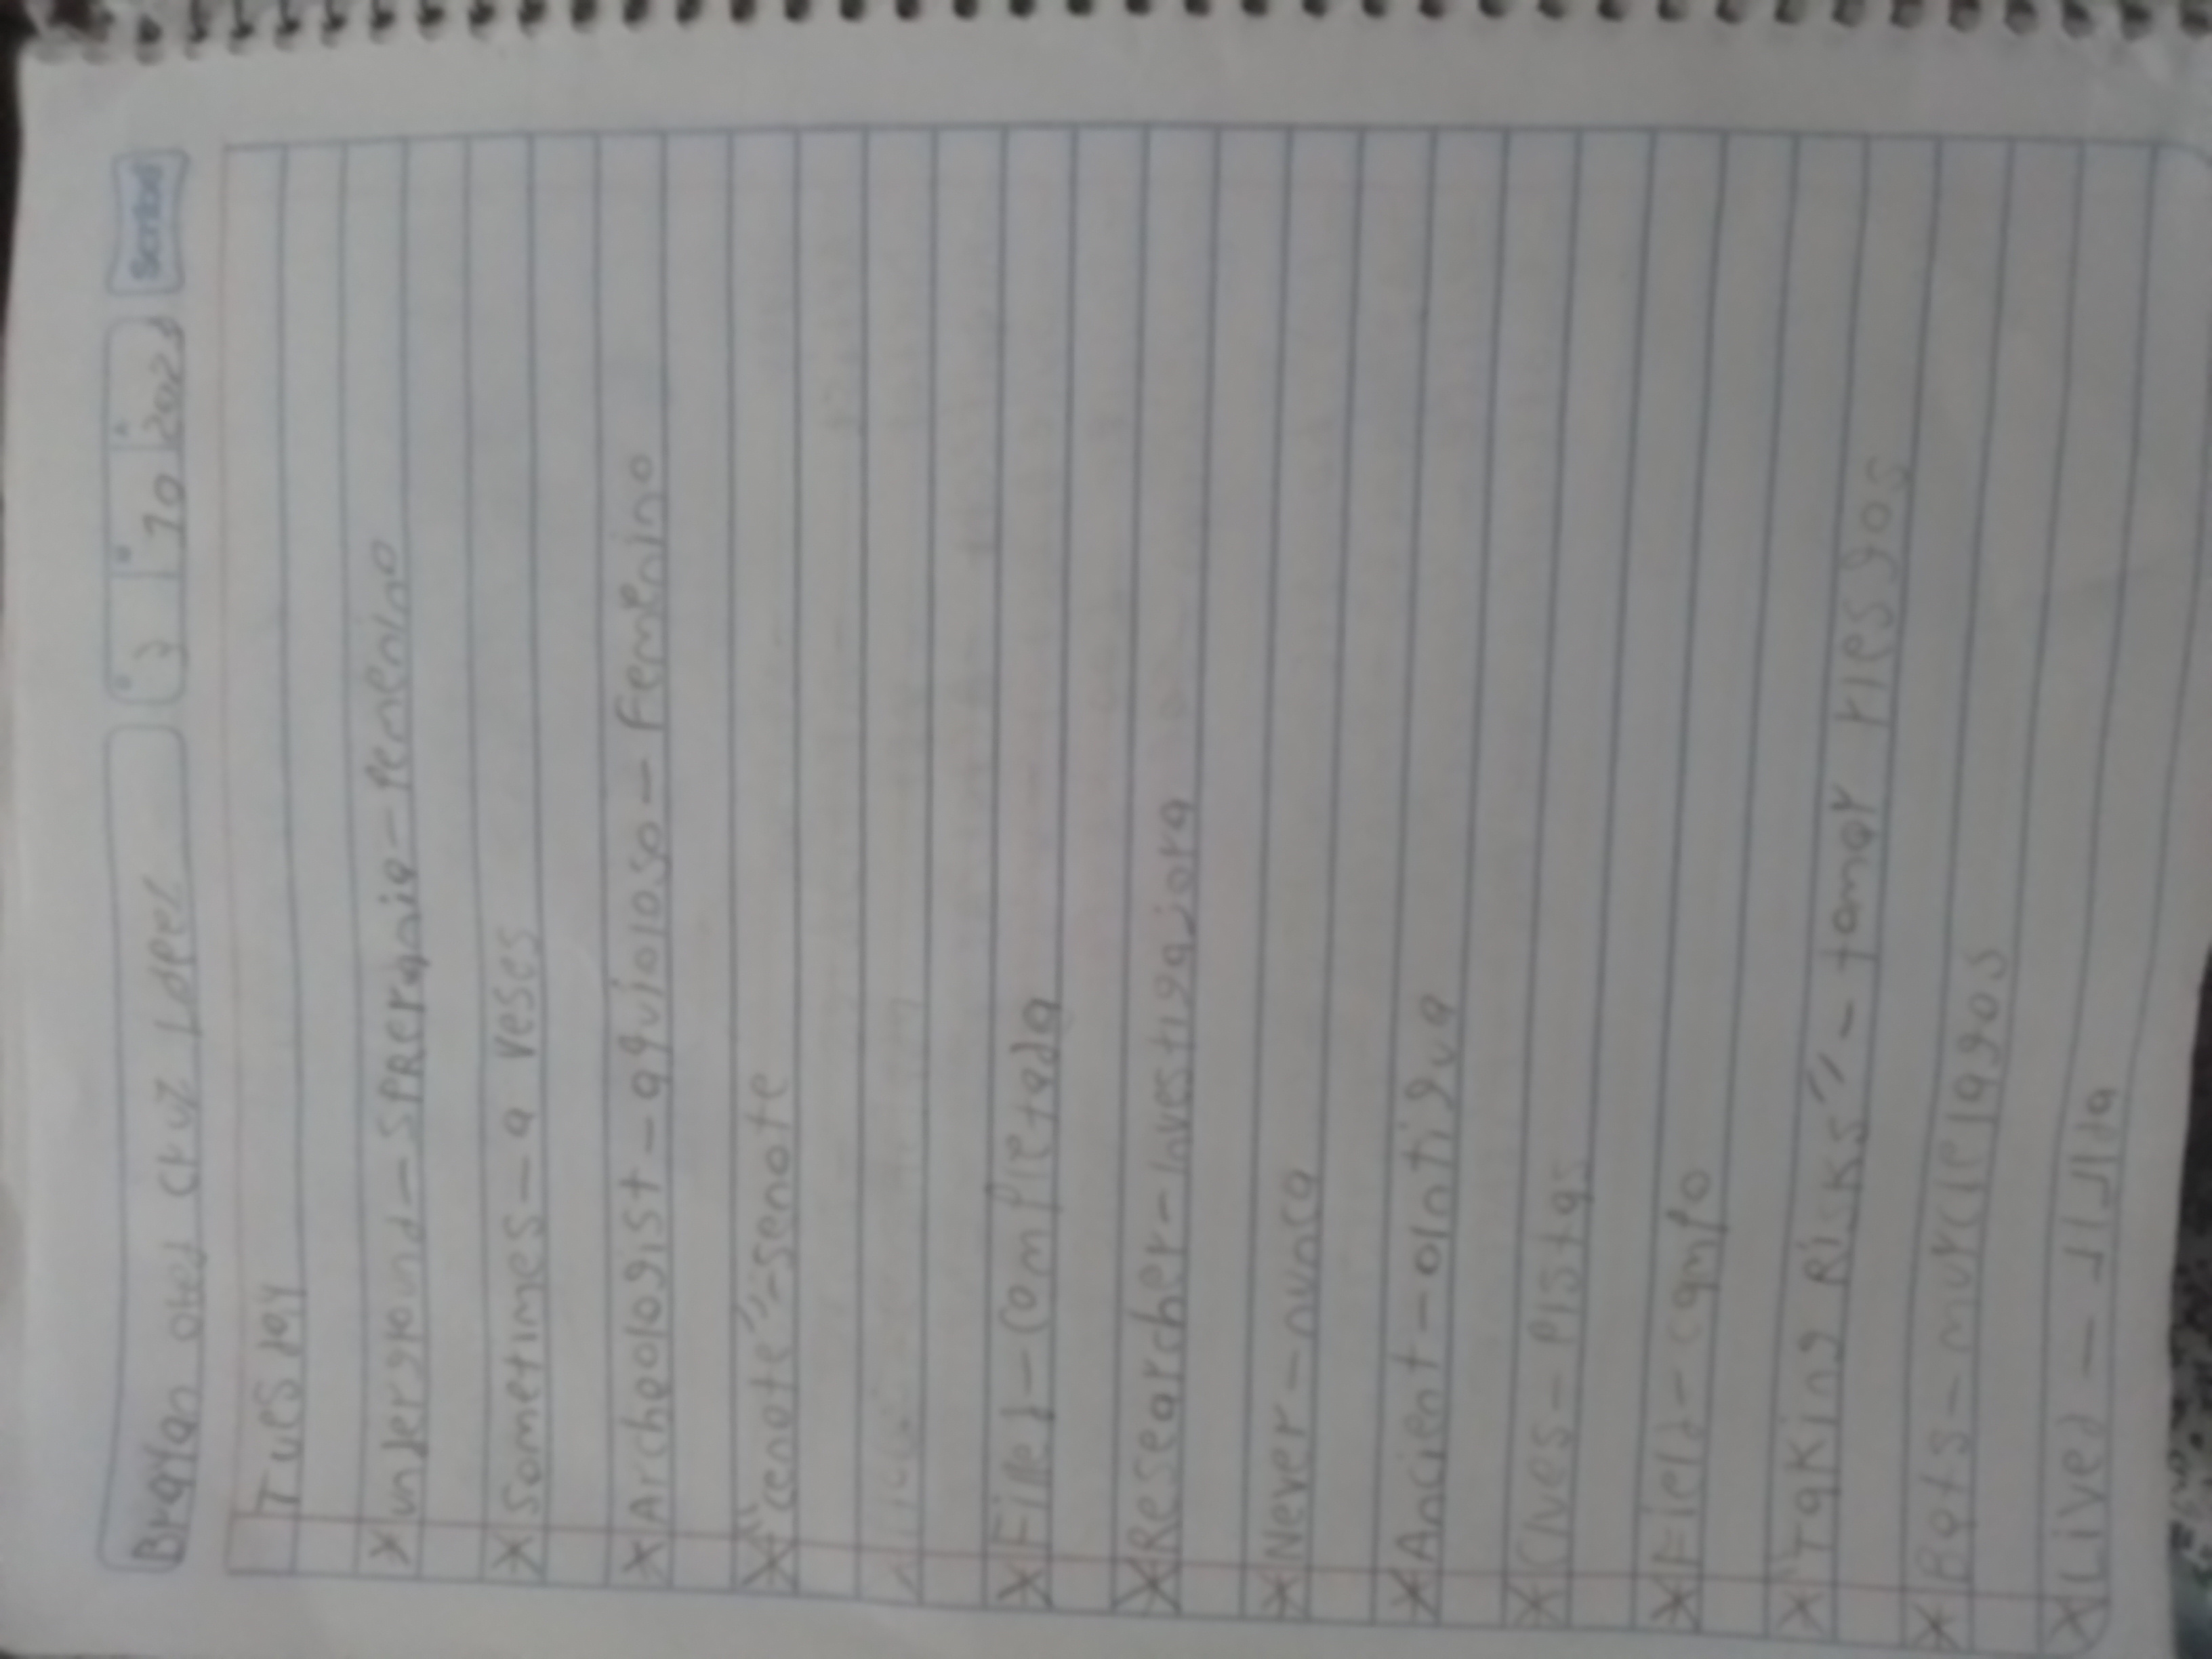 Brayan obed cruz Lopez 3 10 202 Scribe
Tuesday
* underground - - femenino
* Sometimes - a veses
* Archeologist - aquioloso - Femenino
* "cenote" - senote
* Filled - completada
* Researcher - Investigajora
* Never - nunca
* Ancient - antigua
* Clves - Pistas
* Field - campo
* "Taking Risks" - tomar riesgos
* Bats - murcielagos
* Lived -